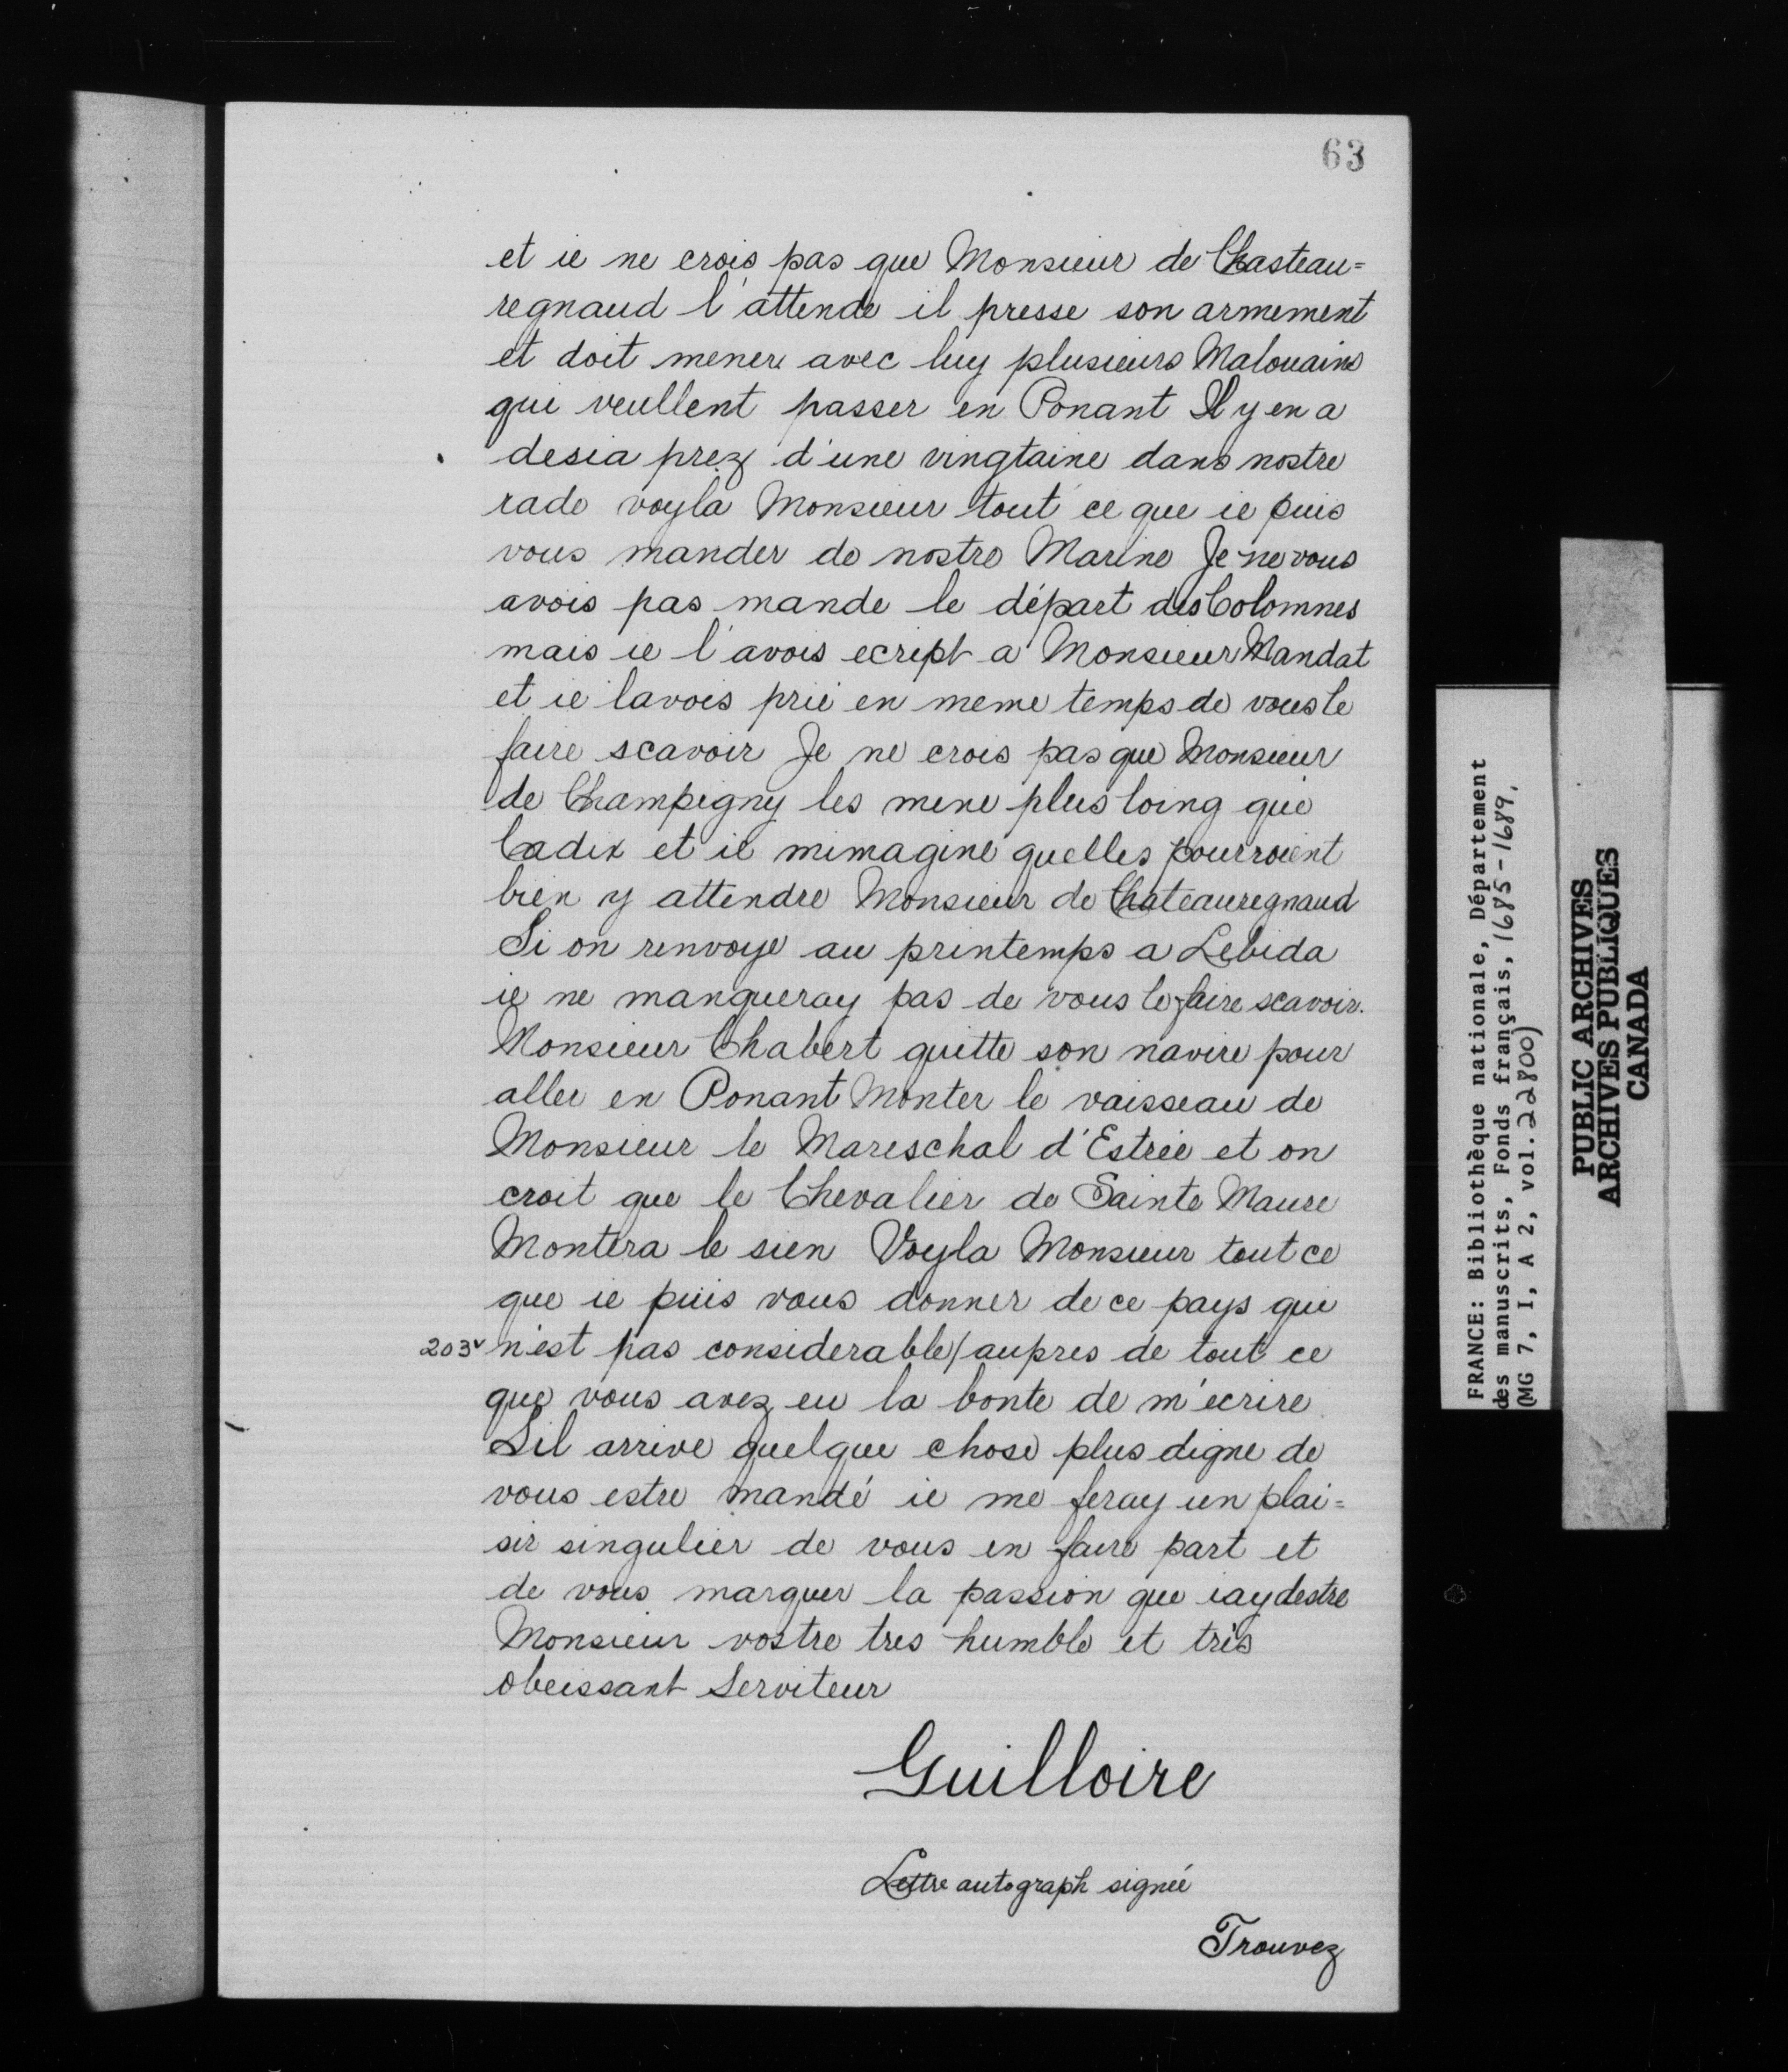 63
et ie ne crois pas que Monsieur de Chasteau=
regnaud l'attende il presse son armement
et doit mener avec luy plusieurs Malouains
qui veullent passer en Ponant Il y en a
desia prez d'une vingtaine dans nostre
rade voyla Monsieur tout ce que ie puis
vous mander de nostre Marine Je ne vous
avois pas mande le départ des Colomnes
mais ie l'avois ecript a Monsieur Mandat
et ie lavois prié en meme temps de vous le
faire scavoir Je ne crois pas que Monsieur
de Champigny les mene plus loing que
Cadix et ie mimagine quelles pourroient
bien y attendre Monsieur de Chateauregnaud
Si on renvoye au printemps a Lebida
ie ne manqueray pas de vous le faire scavoir.
Monsieur Chabert quitte son navire pour
aller en Ponant Monter le vaisseau de
Monsieur le Mareschal d'Estrée et on
croit que le Chevalier de Sainte Maure
Montera le sien Voyla Monsieur tout ce
que ie puis vous donner de ce pays qui
203v n'est pas considerable/aupres de tout ce
que vous avez eu la bonte de m'ecrire
Sil arrive quelque chose plus digne de
vous estre mandé ie me feray un plai=
sir singulier de vous en faire part et
de vous marquer la passion que iay destre
Monsieur vostre tres humble et très
obeissant Serviteur
Guilloire
Lettre autograph signée
Trouvez
FRANCE: Bibliothèque nationale, Département
des manuscrits, Fonds français, 1685-1689.
(MG 7, I, A 2, vol. 22800)
PUBLIC ARCHIVES
ARCHIVES PUBLIQUES
CANADA